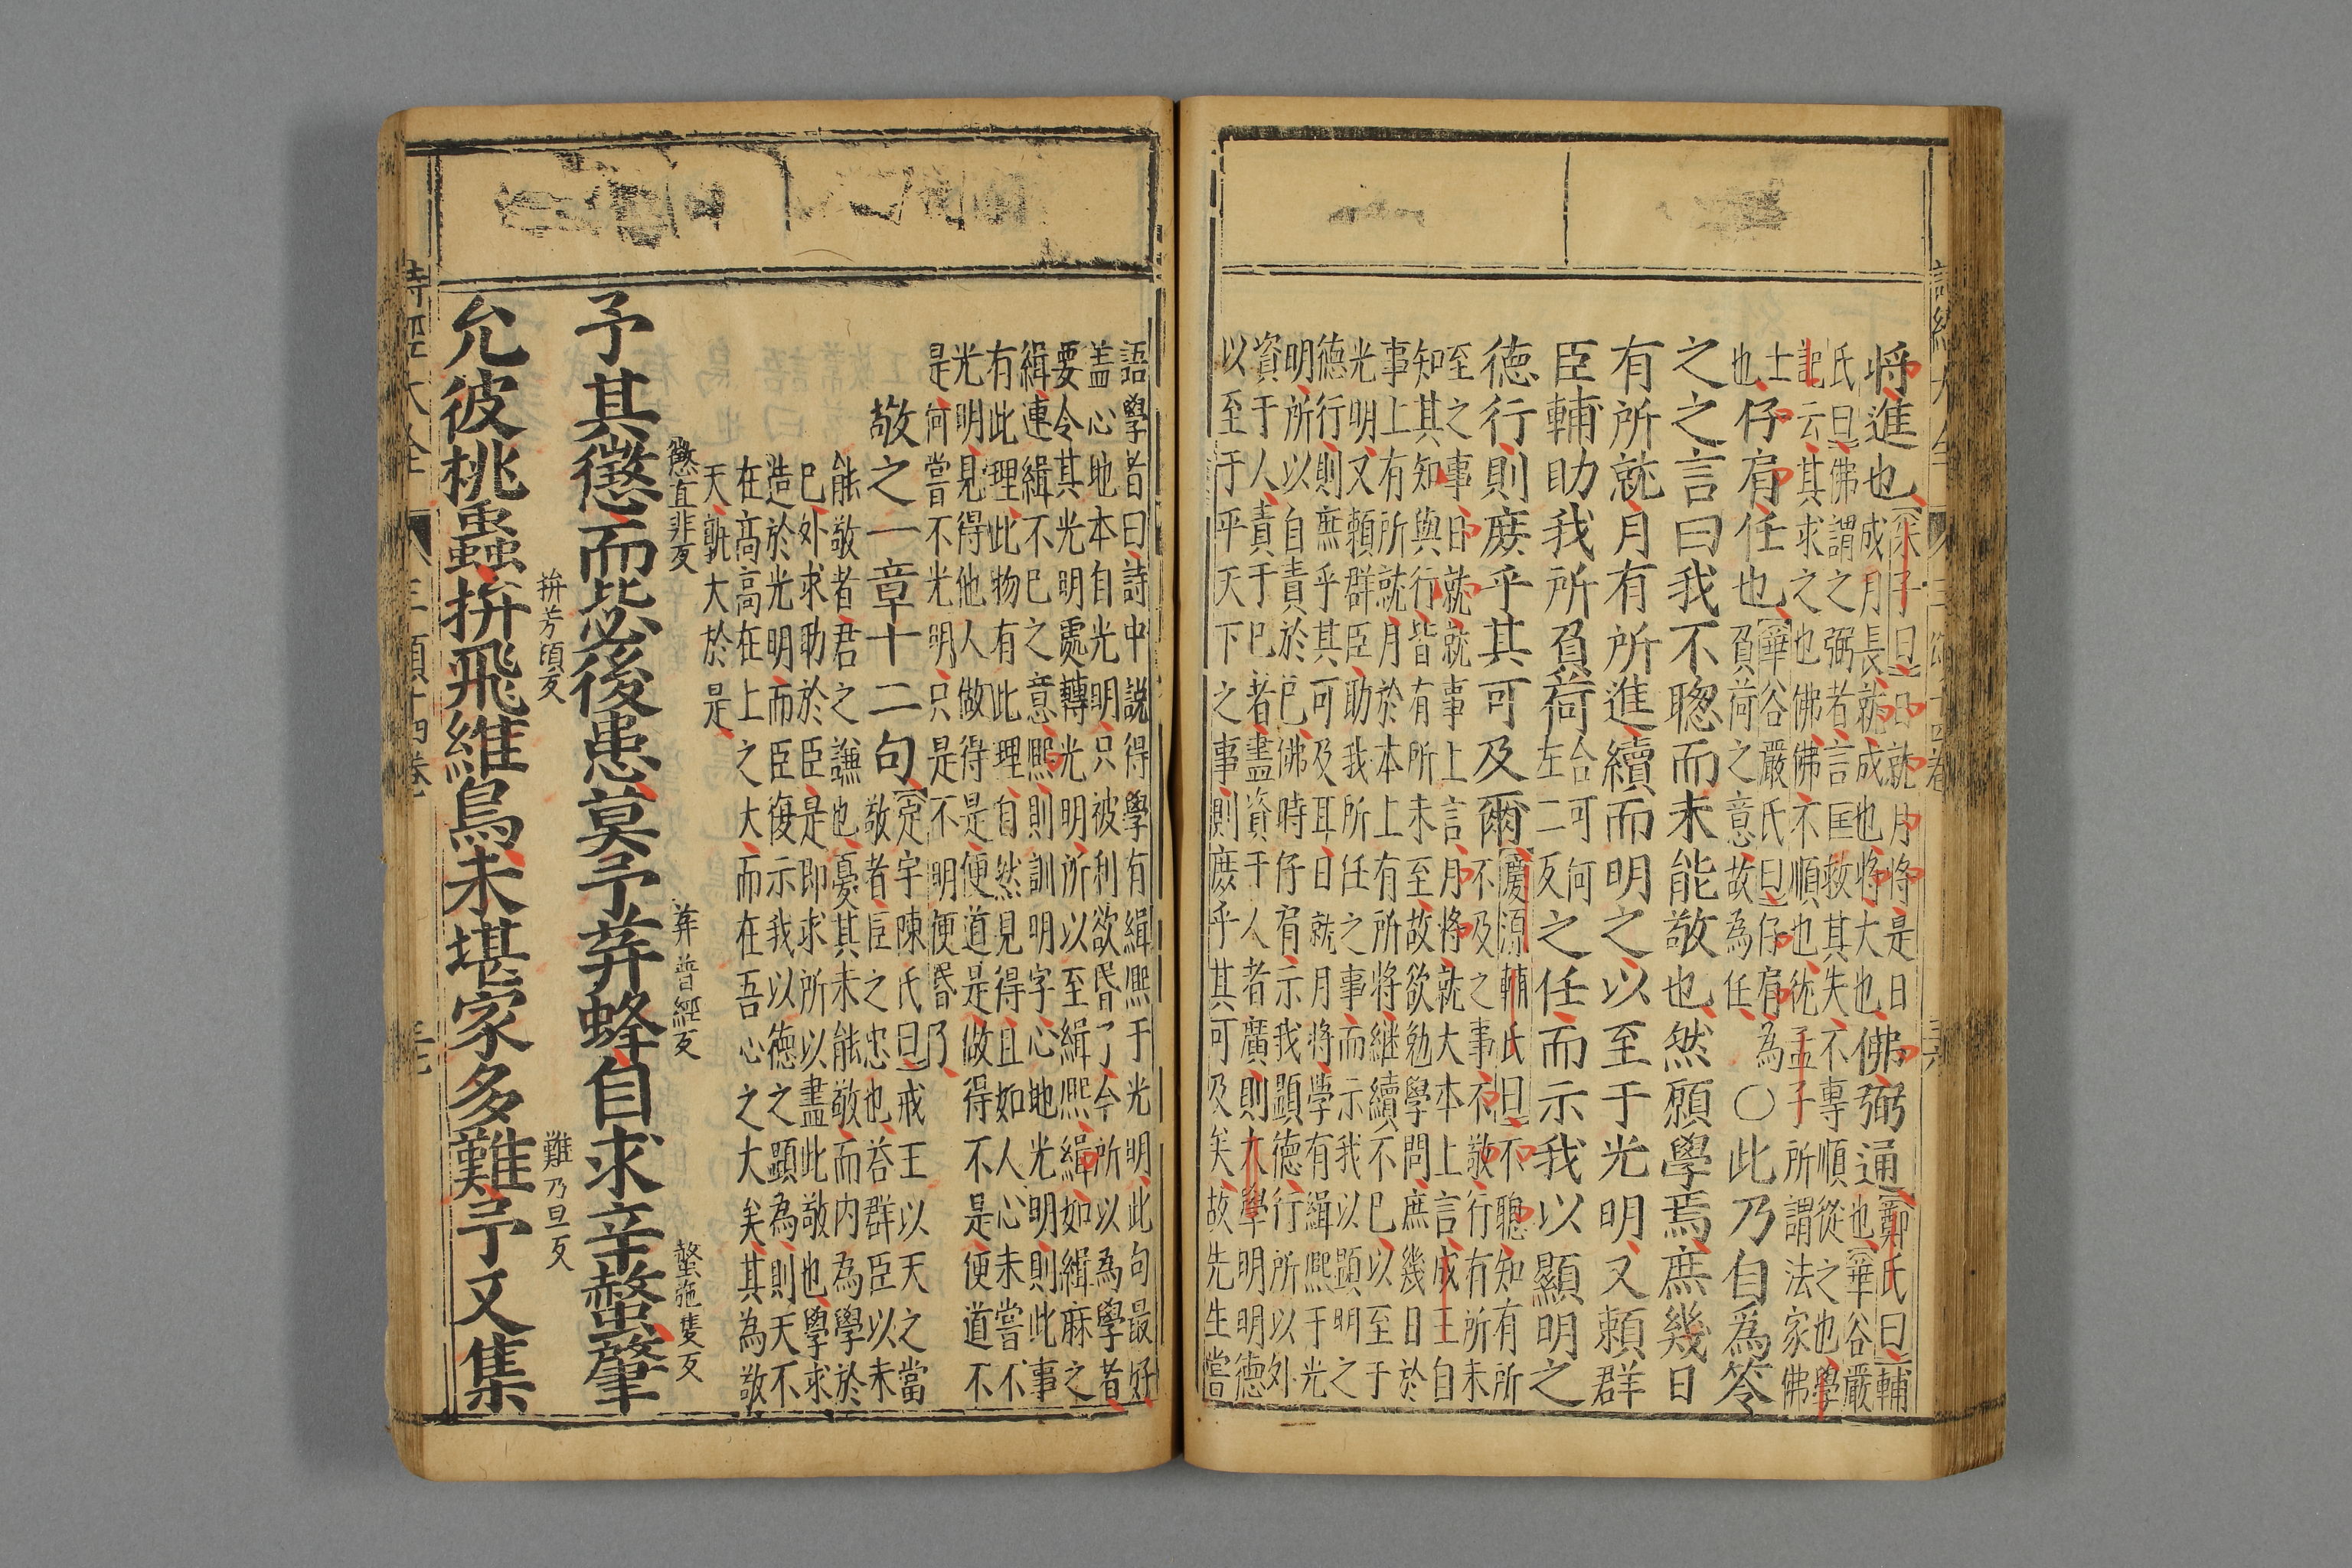 將進也朱子曰日就月將是日
成月長就成也將大也佛弼通鄭氏曰輔
也華谷嚴
氏曰佛謂之弼者言匡救其失不專順從之也學
記云其求之也佛佛不順也從孟子所謂法家佛
士仔肩任也華谷嚴氏曰仔肩為
也負荷之意故為任○此乃自爲答
之之言曰我不聦而未能敬也然願學焉庶幾日
有所就月有所進續而明之以至于光明又頼群
臣輔助我所負荷合可何
左二反之任而示我以顯明之
德行則庶乎其可及爾慶源輔氏曰不聽知有所
不及之事不敬行有所未
至之事日就就事上言月將就大本上言成王自
知其知與行皆有所未至故欲勉學問庶幾日於
事上有所就月於本上有所將継續不已以至于
光明又頼群臣助我所任之事而示我以顕明之
德行則庶乎其可及耳日就月將學有緝熙于光
明所以自責於已佛時仔肩示我顕德行所以外
資于人責于已者盡資于人者廣則大學明明德
以至于平天下之事則庶乎其可及矣故先生嘗
語學者曰詩中説得學有緝熙于光明此句最好
盖心地本自光明只被利欲昏了今所以為學者
要令其光明處轉光明所以至緝熙緝如緝麻之
緝連緝不已之意熙則訓明字心地光明則此事
有此理此物有此理自然見得且如人心未嘗不
光明見得他人做得是便道是做得不是便道不
是何嘗不光明只是不明便昏乃
敬之一章十二句定宇陳氏曰戒王以天之當
敬者臣之忠也荅群臣以未
能敬者君之謙也憂其未能敬而内為學於
已外求助於臣是即求所以盡此敬也學求
造於光明而臣復示我以德之顕為則天不
在高高在上之大而在吾心之大矣其為敬
天孰大於是
懲直非反
荓普經反
螫施隻反
予其懲而毖後患莫予荓蜂自求辛螫肇
拚芳煩反
難乃旦反
允彼桃蟲拚飛維鳥未堪家多難予又集